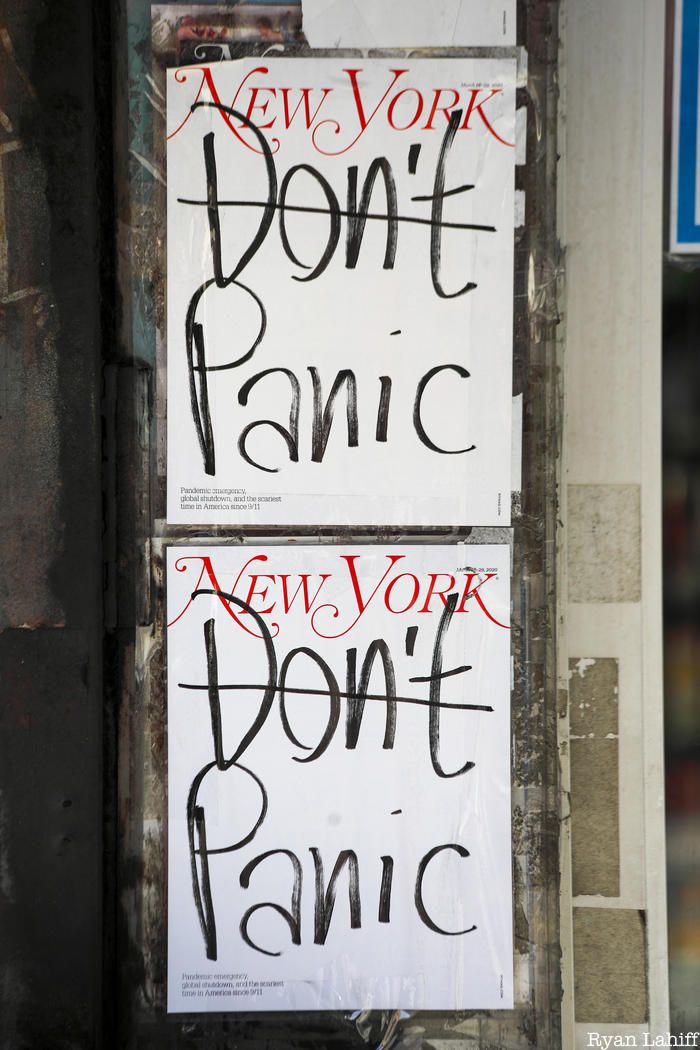 NEW YORK
Don't
Panic
Pandemic emergency,
global shutdown, and the scariest
time in America since 9/11
NEW YORK
Don't
Panic
Pandemic emergency,
global shutdown, and the scariest
time in America since 9/11
Ryan Lahiff